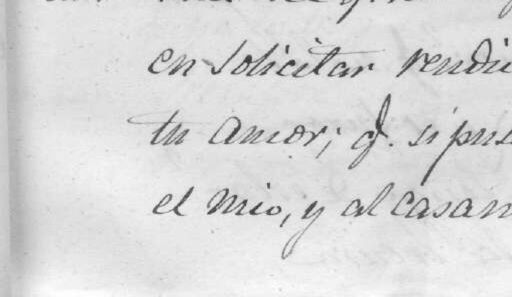 en solicitar rendi
tu amor; q. si pus
el mio, y al casan